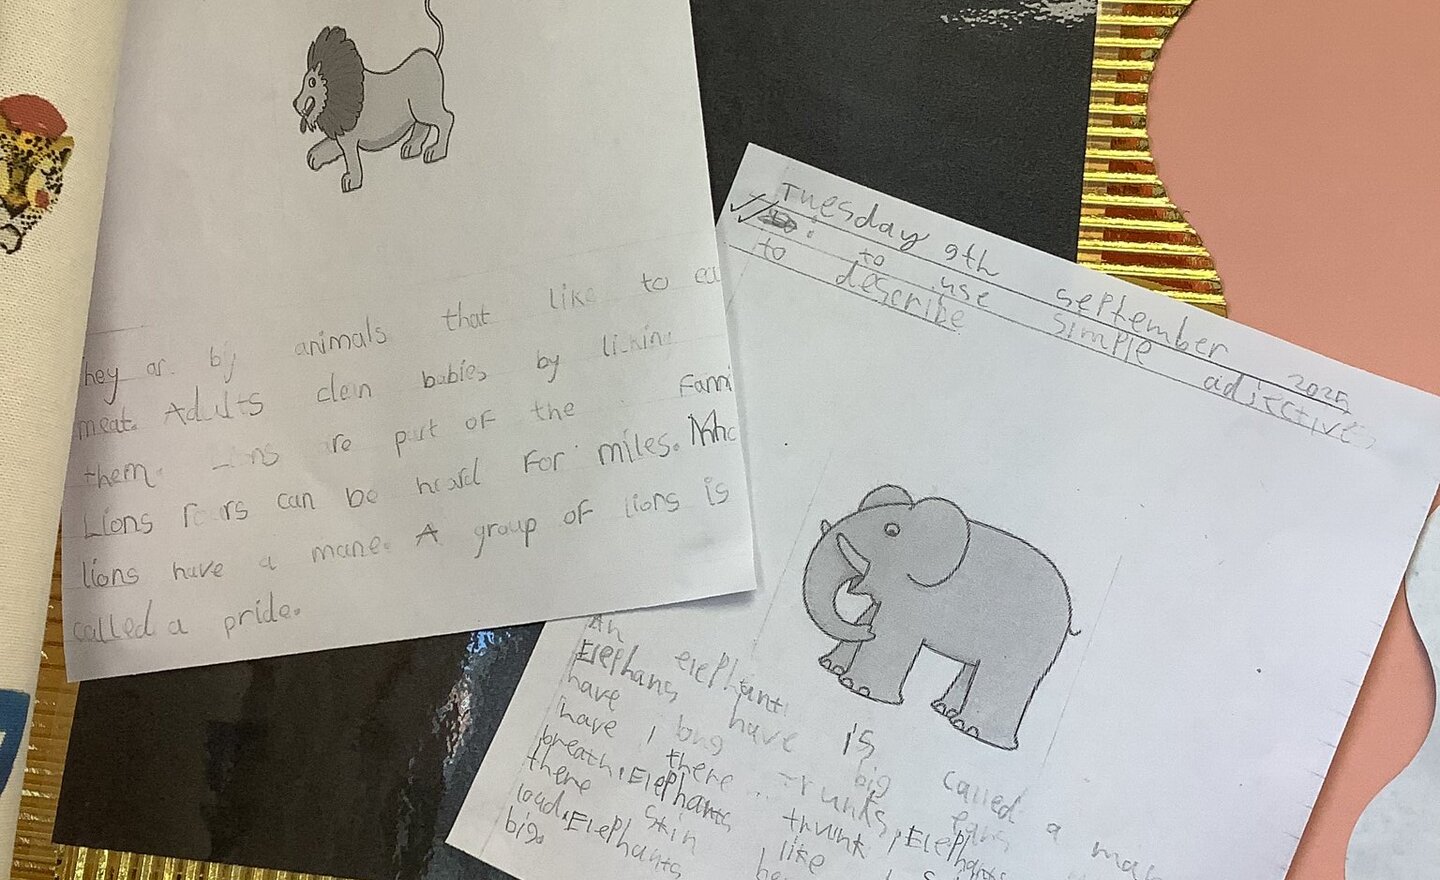 hey ar big animals that like to ea
meat. Adults clean babies by lickin
them. Lions are part of the Fami
Lions roars can be heard For miles.
lions have a mane. A group oF lions is
called a pride.
Tuesday 9th september 2025
: to use simple adjectives
to describe
An elephant is called a
Elephans have big ears
have long trunks, Elephants
have there trunk
breath, Elephants like
there skin
load, Elephants
big.